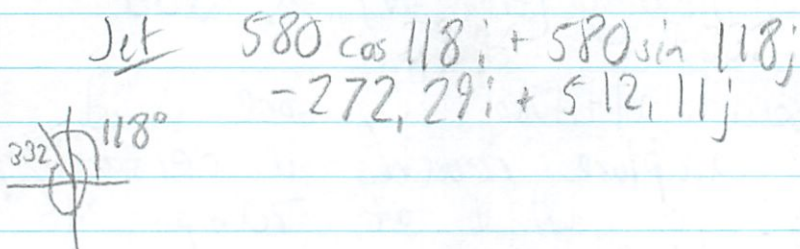 Jet 580 cos 118i + 580 sin 118j
-272,29i + 512,11j
332 118°